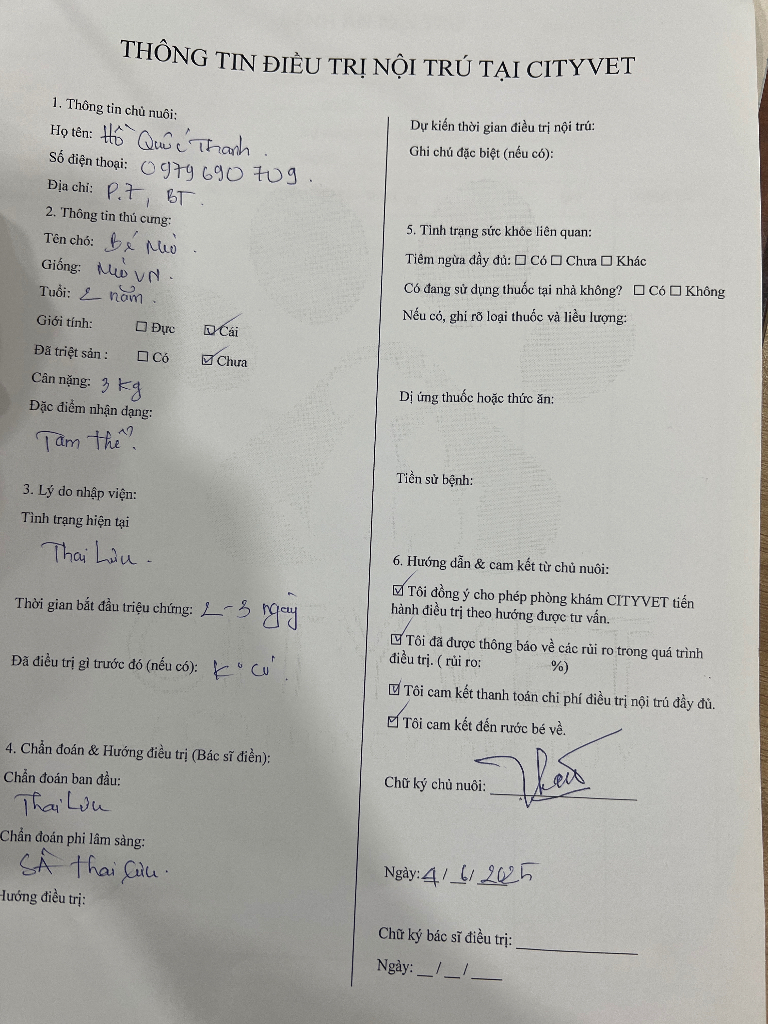 THÔNG TIN ĐIỀU TRỊ NỘI TRÚ TẠI CITYVET
1. Thông tin chủ nuôi:
Họ tên: Hồ Quốc Thanh.
Số điện thoại: 0979 690 709.
Địa chỉ: P.7, BT.
2. Thông tin thú cưng:
Tên chó: Bé Mio.
Giống: Mèo VN.
Tuổi: 2 năm.
Giới tính: ☐ Đực ☑ Cái
Đã triệt sản : ☐ Có ☑ Chưa
Cân nặng: 3 kg
Đặc điểm nhận dạng:
Tam thể.
3. Lý do nhập viện:
Tình trạng hiện tại
Thai Lưu.
Thời gian bắt đầu triệu chứng: 2-3 ngày
Đã điều trị gì trước đó (nếu có): K° có.
4. Chẩn đoán & Hướng điều trị (Bác sĩ điền):
Chẩn đoán ban đầu:
Thai Lưu
Chẩn đoán phi lâm sàng:
SÂ thai lưu.
Hướng điều trị:
Dự kiến thời gian điều trị nội trú:
Ghi chú đặc biệt (nếu có):
5. Tình trạng sức khỏe liên quan:
Tiêm ngừa đầy đủ: ☐ Có ☐ Chưa ☐ Khác
Có đang sử dụng thuốc tại nhà không? ☐ Có ☐ Không
Nếu có, ghi rõ loại thuốc và liều lượng:
Dị ứng thuốc hoặc thức ăn:
Tiền sử bệnh:
6. Hướng dẫn & cam kết từ chủ nuôi:
☑ Tôi đồng ý cho phép phòng khám CITYVET tiến
hành điều trị theo hướng được tư vấn.
☑ Tôi đã được thông báo về các rủi ro trong quá trình
điều trị. ( rủi ro: %)
☑ Tôi cam kết thanh toán chi phí điều trị nội trú đầy đủ.
☑ Tôi cam kết đến rước bé về.
Chữ ký chủ nuôi:
Ngày: 4/6/2025
Chữ ký bác sĩ điều trị: ___
Ngày: __/__/___